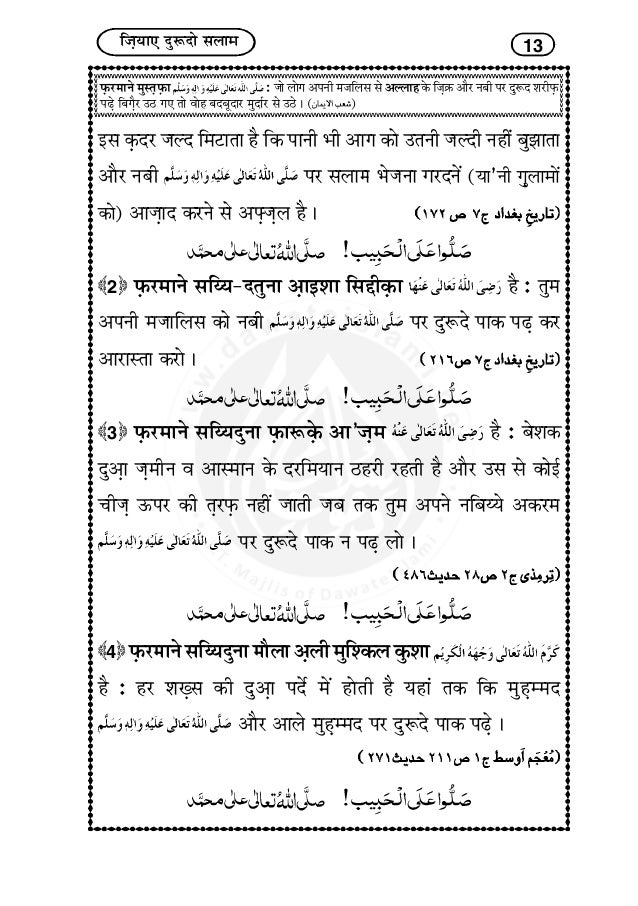 ज़ियाए दुरूदो सलाम
13
फ़रमाने मुस्तफ़ा صَلَّى اللهُ تَعَالٰى عَلَيْهِ وَاٰلِهٖ وَسَلَّم : जो लोग अपनी मजलिस से अल्लाह के ज़िक्र और नबी पर दुरूद शरीफ़
पढ़े बिग़ैर उठ गए तो वोह बदबूदार मुर्दार से उठे । (شعب الایمان)
इस क़दर जल्द मिटाता है कि पानी भी आग को उतनी जल्दी नहीं बुझाता
और नबी صَلَّى اللهُ تَعَالٰى عَلَيْهِ وَاٰلِهٖ وَسَلَّم पर सलाम भेजना गरदनें (या'नी ग़ुलामों
को) आज़ाद करने से अफ़्ज़ल है । (تاریخِ بغداد ج٧ ص ١٧٢)
صَلُّوا عَلَى الْحَبِيب ! صلَّى اللهُ تعالٰى على محمَّد
﴾2﴿ फ़रमाने सय्यि-दतुना आ़इशा सिद्दीक़ा رَضِىَ اللهُ تَعَالٰى عَنْهَا है : तुम
अपनी मजालिस को नबी صَلَّى اللهُ تَعَالٰى عَلَيْهِ وَاٰلِهٖ وَسَلَّم पर दुरूदे पाक पढ़ कर
आरास्ता करो । (تاریخِ بغداد ج٧ ص٢١٦)
صَلُّوا عَلَى الْحَبِيب ! صلَّى اللهُ تعالٰى على محمَّد
﴾3﴿ फ़रमाने सय्यिदुना फ़ारूक़े आ'ज़म رَضِىَ اللهُ تَعَالٰى عَنْهُ है : बेशक
दुआ़ ज़मीन व आस्मान के दरमियान ठहरी रहती है और उस से कोई
चीज़ ऊपर की त़रफ़ नहीं जाती जब तक तुम अपने नबिय्ये अकरम
صَلَّى اللهُ تَعَالٰى عَلَيْهِ وَاٰلِهٖ وَسَلَّم पर दुरूदे पाक न पढ़ लो ।
(تِرمِذی ج٢ ص٢٨ حدیث٤٨٦)
صَلُّوا عَلَى الْحَبِيب ! صلَّى اللهُ تعالٰى على محمَّد
﴾4﴿ फ़रमाने सय्यिदुना मौला अ़ली मुश्किल कुशा كَرَّمَ اللهُ تَعَالٰى وَجْهَهُ الْكَرِيْم
है : हर शख़्स की दुआ़ पर्दे में होती है यहां तक कि मुह़म्मद
صَلَّى اللهُ تَعَالٰى عَلَيْهِ وَاٰلِهٖ وَسَلَّم और आले मुह़म्मद पर दुरूदे पाक पढ़े ।
(مُعْجَم أوسط ج١ ص٢١١ حدیث٢٧١)
صَلُّوا عَلَى الْحَبِيب ! صلَّى اللهُ تعالٰى على محمَّد